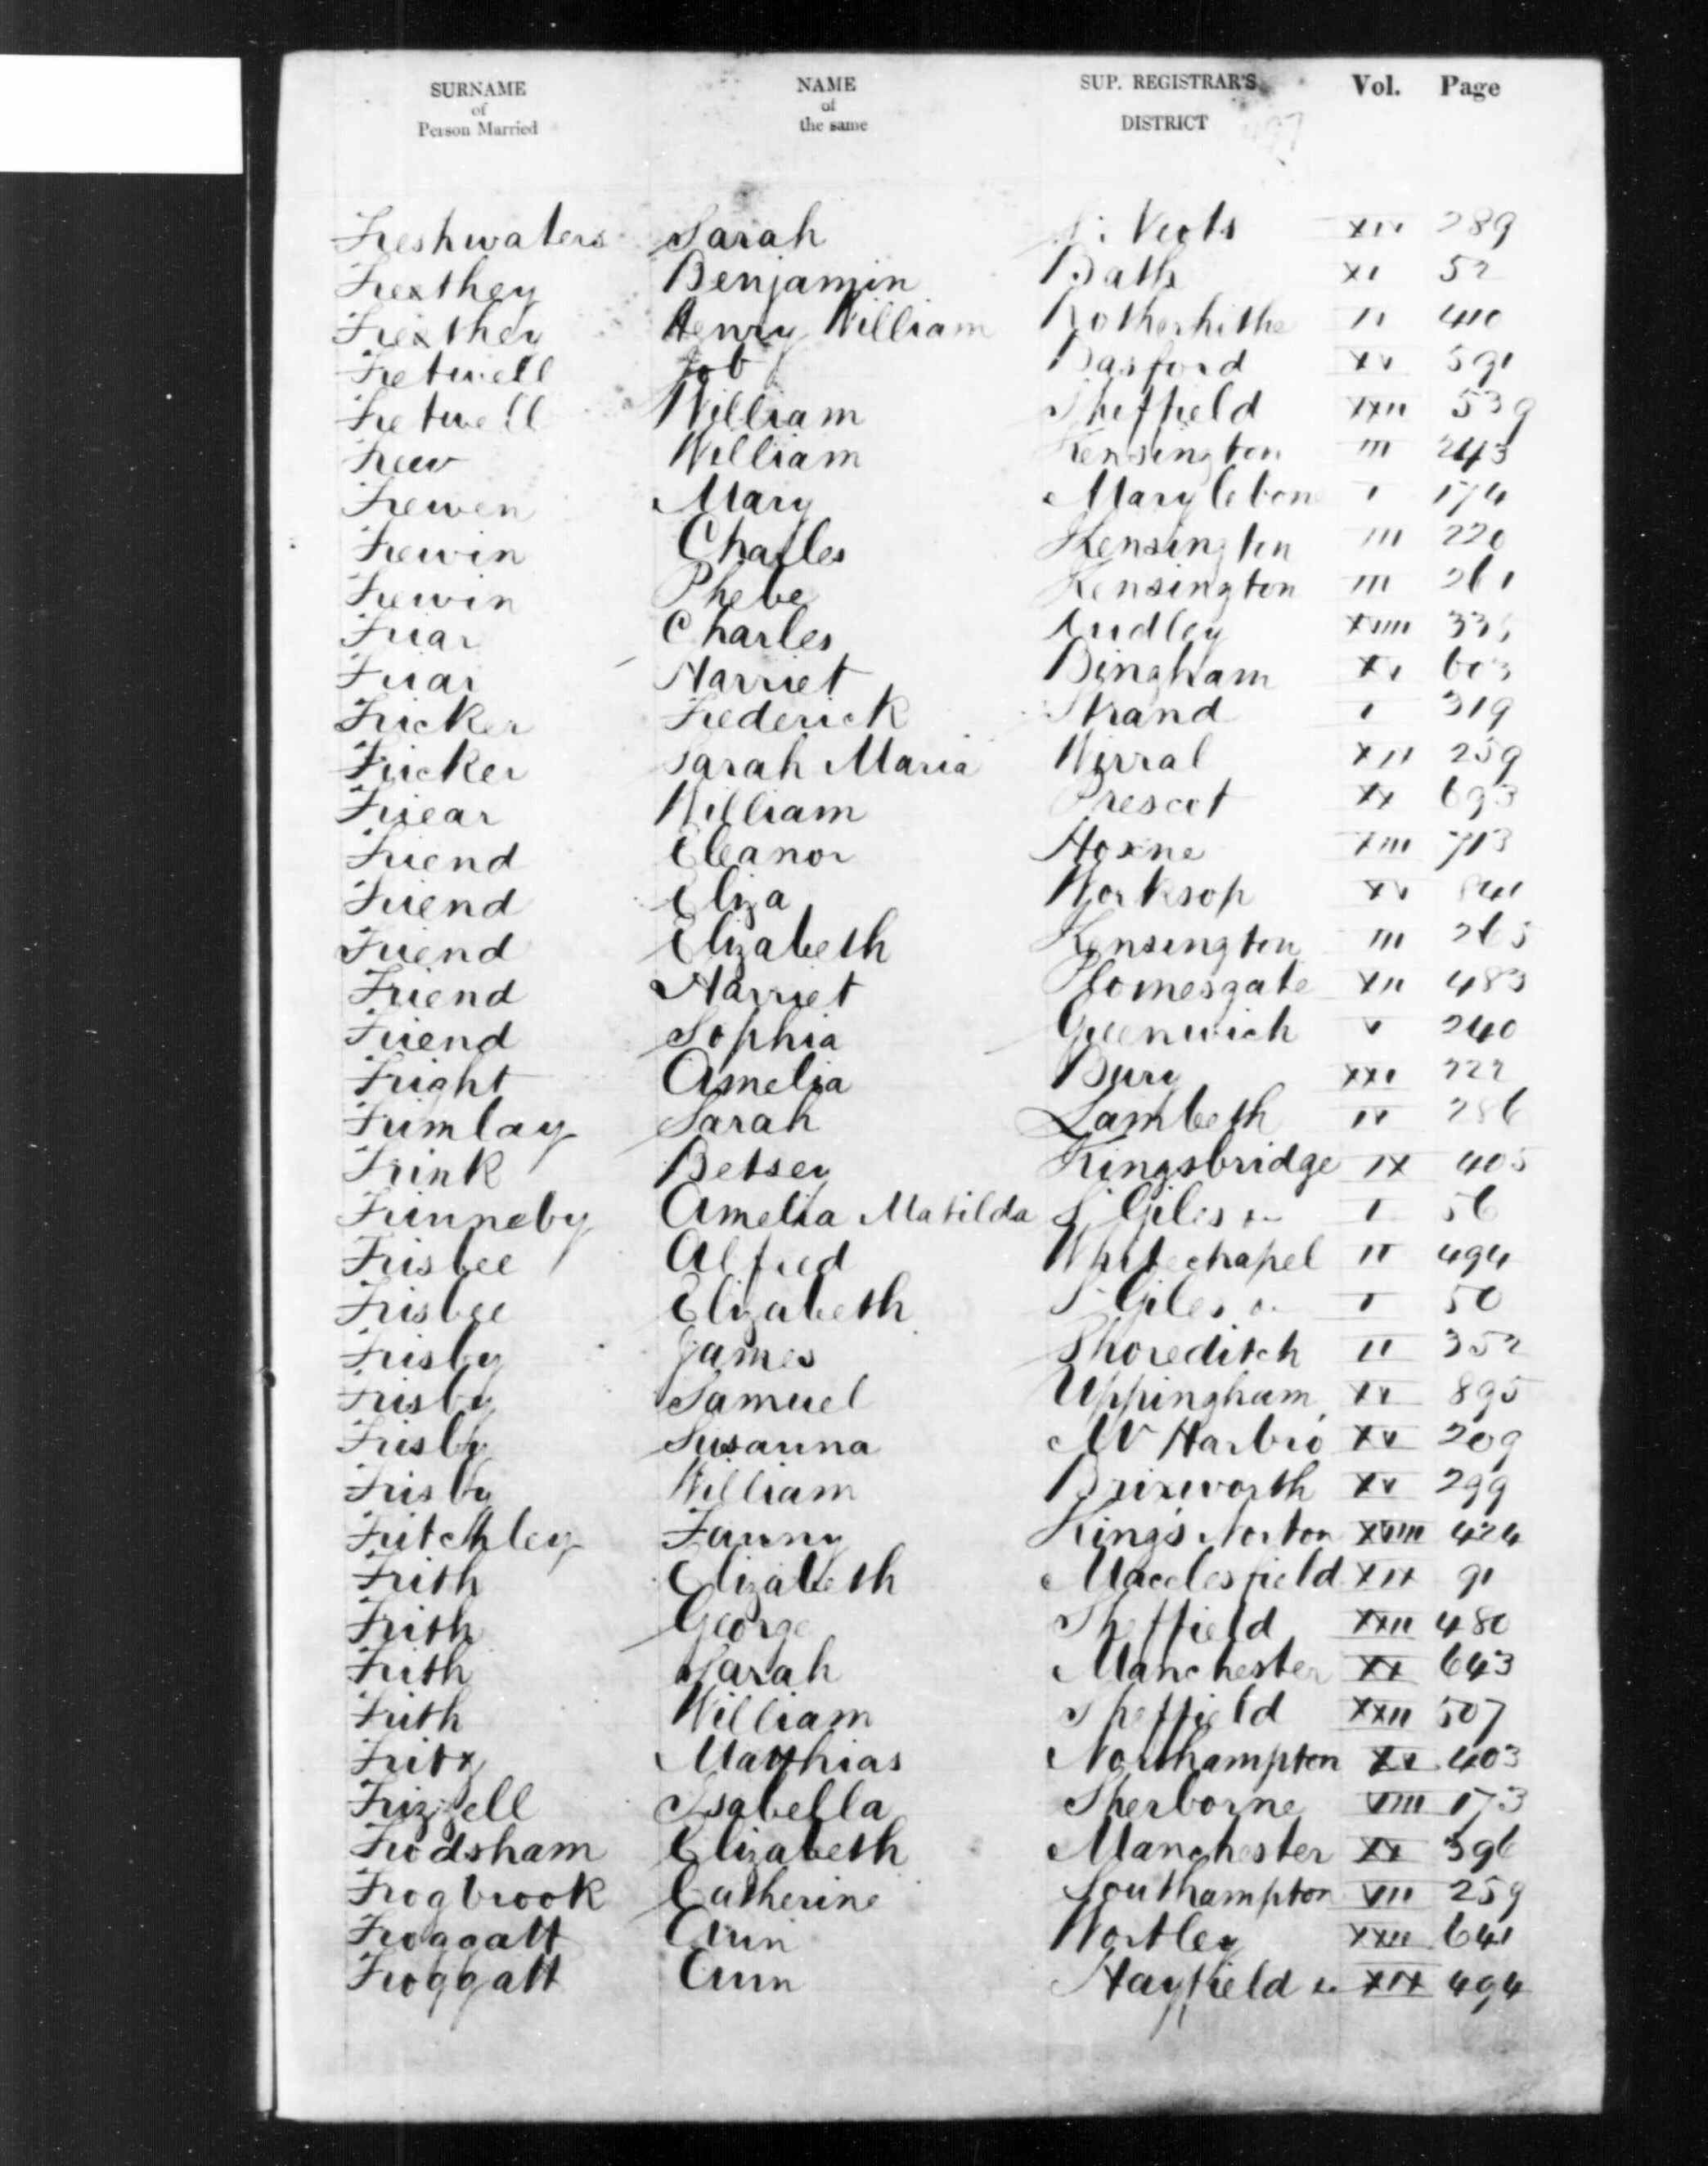 SURNAME of Person Married NAME of the same SUP. REGISTRAR'S DISTRICT Vol. Page
Freshwaters Sarah St Neots XIV 289
Frexthey Benjamin Bath XI 52
Frexthey Henry William Rotherhithe 410
Fretwell Job Basford XV 591
Fretwell William Sheffield XXII 539
Frew William Kensington III 243
Frewen Mary Marylebone I 174
Frewin Charles Kensington III 220
Frewin Phebe Kensington III 261
Friar Charles Dudley XVIII
Friar Harriet Bingham XV 603
Fricker Frederick Strand I 319
Fricker Sarah Maria Wirral 259
Friear William Prescot XX 693
Friend Eleanor Hoxne XIII 713
Friend Eliza Worksop XV 841
Friend Elizabeth Kensington III 265
Friend Harriet XII 483
Friend Sophia Greenwich V 240
Fright Amelia Bury XXI 222
Frimlay Sarah Lambeth IV 286
Frink Betsey Kingsbridge IX 405
Frinneby Amelia Matilda St Giles &c I 56
Frisbee Alfred Whitechapel II 494
Frisbee Elizabeth St Giles &c I 50
Frisby James Shoreditch II 352
Frisby Samuel Uppingham XV 895
Frisby Susanna Mt Harbro' XV 209
Frisby William Brixworth XV 299
Fritchley Fanny King's Norton XVIII 424
Frith Elizabeth Macclesfield XIX 91
Frith George Sheffield XXII 480
Frith Sarah Manchester XX 643
Frith William Sheffield XXII 507
Fritz Matthias Northampton XV 403
Frizzell Isabella Sherborne VIII 173
Frodsham Elizabeth Manchester XX 396
Frogbrook Catherine Southampton VII 259
Froggatt Ann Wortley XXII 641
Froggatt Ann Hayfield &c XIX 494